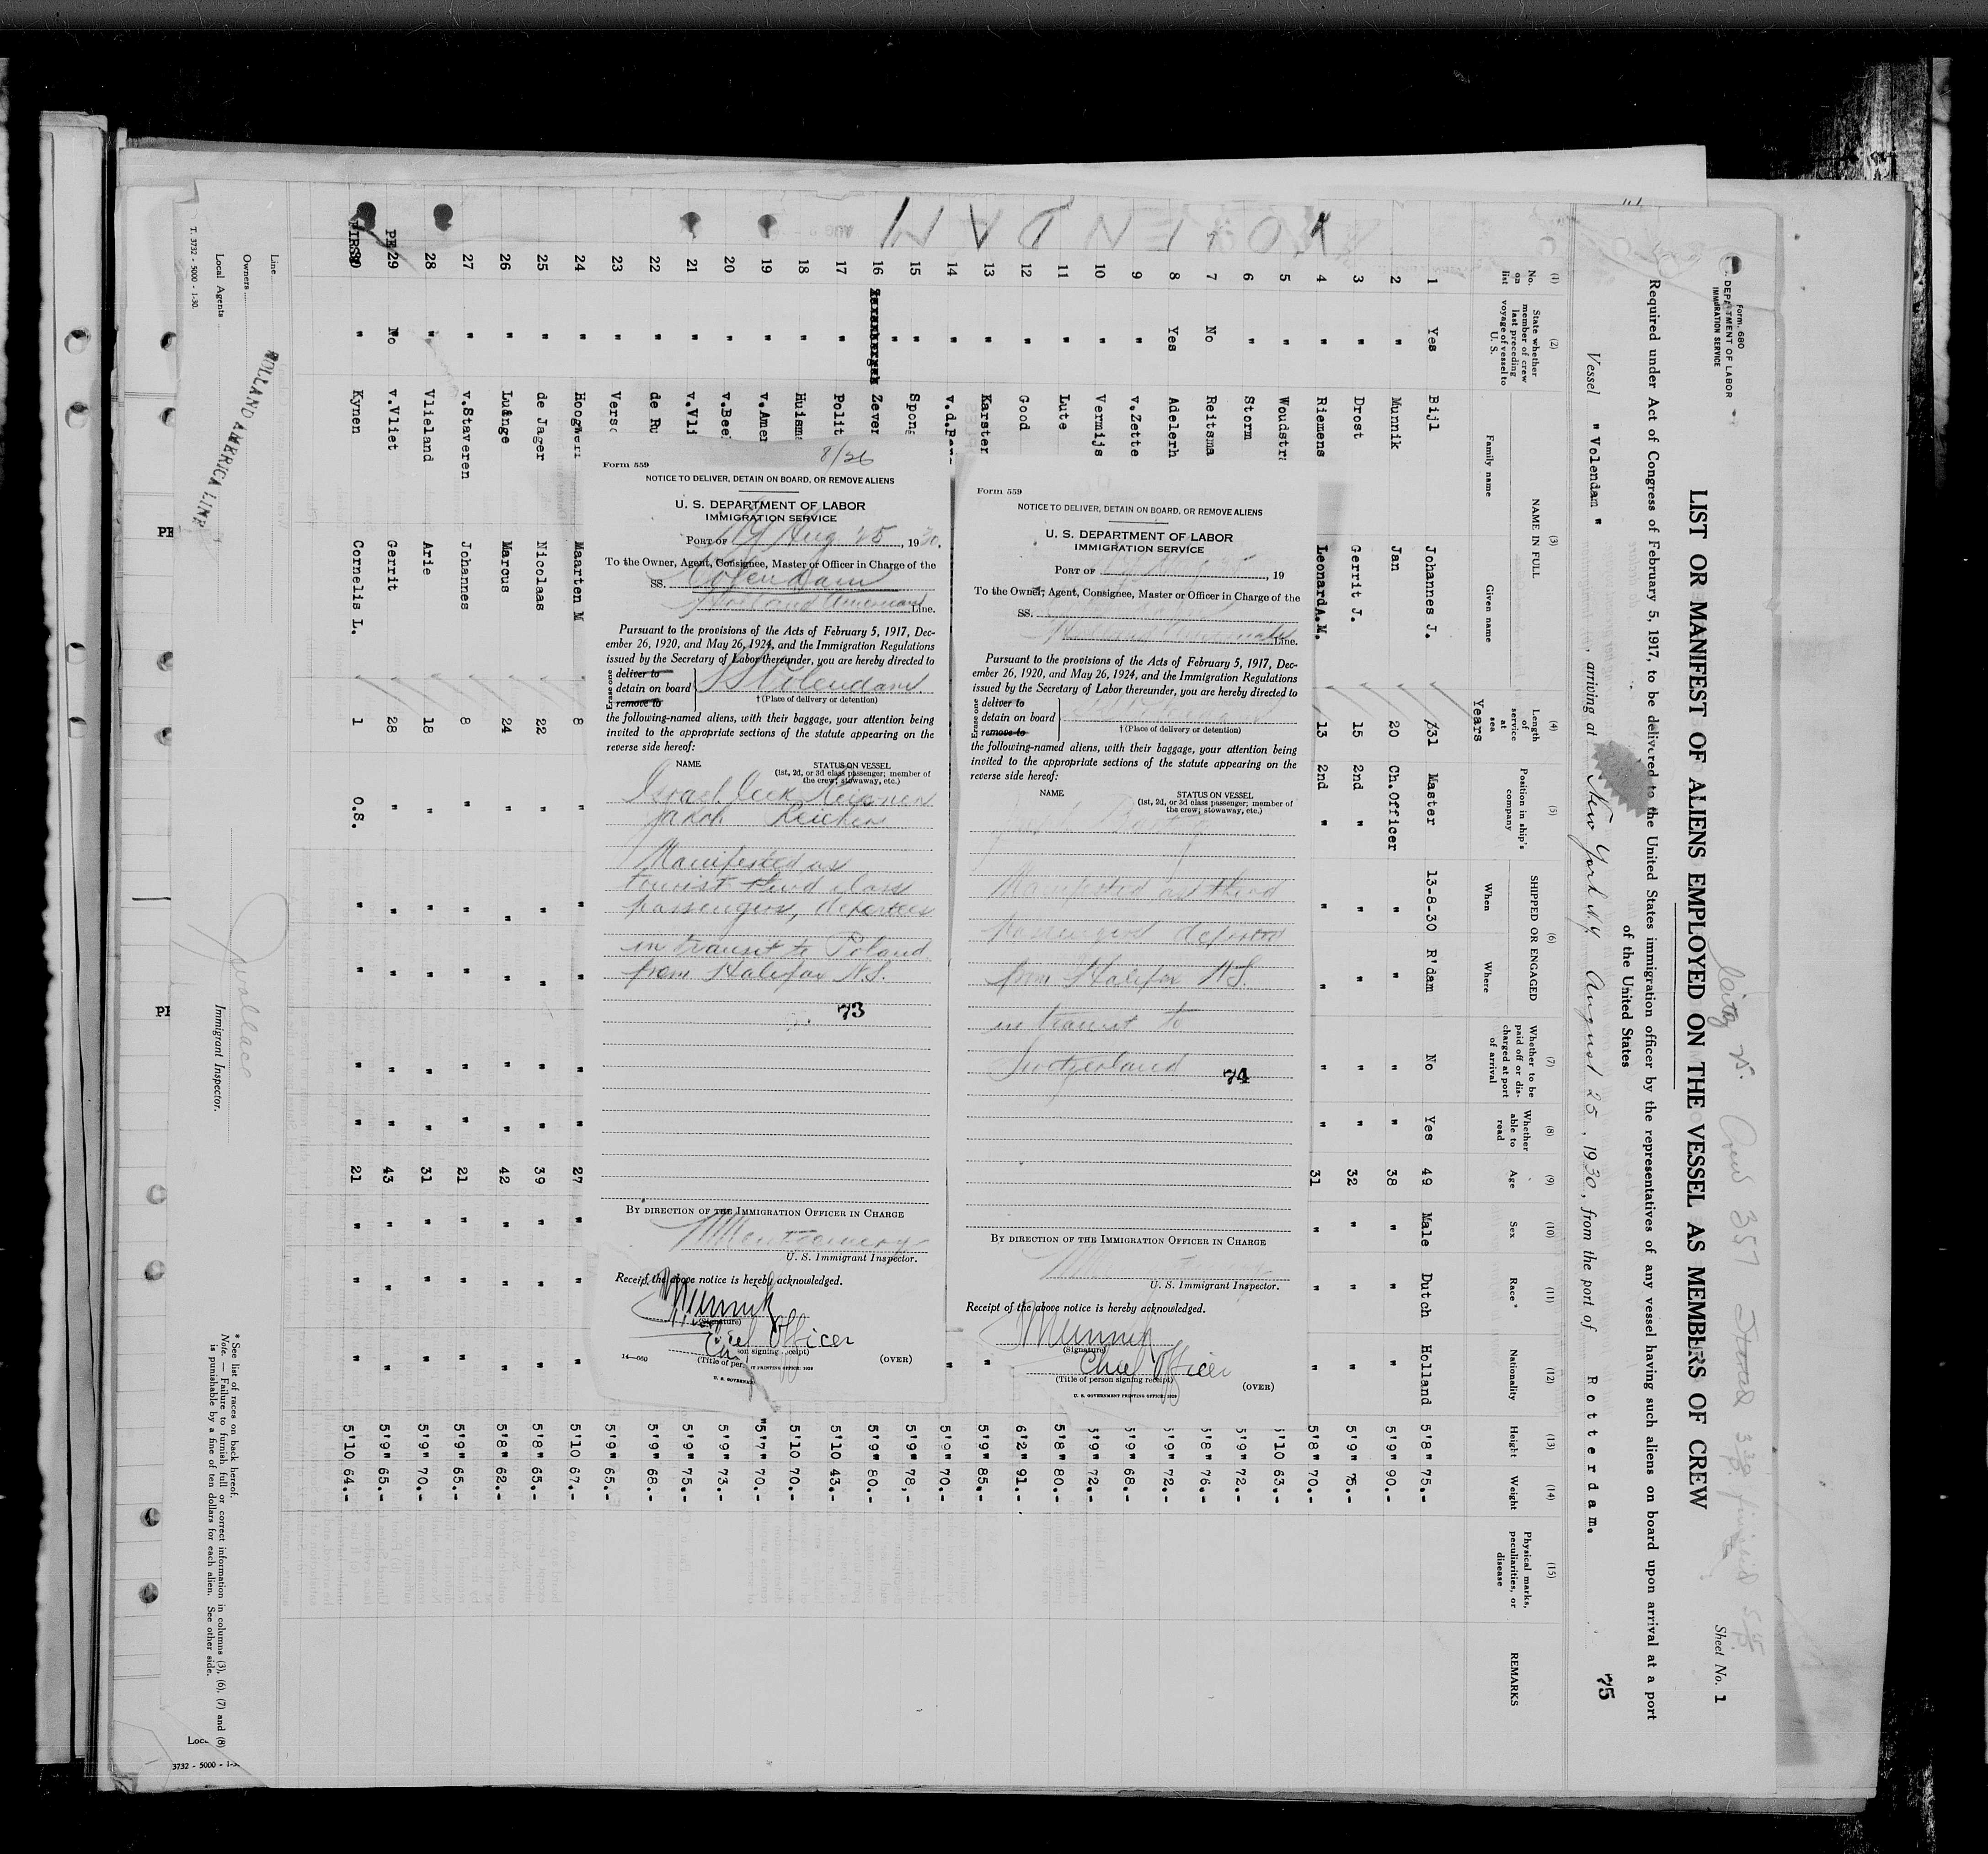 Form 680
U. S. DEPARTMENT OF LABOR
IMMIGRATION SERVICE
Sheet No. 1
LIST OR MANIFEST OF ALIENS EMPLOYED ON THE VESSEL AS MEMBERS OF CREW
Required under Act of Congress of February 5, 1917, to be delivered to the United States immigration officer by the representatives of any vessel having such aliens on board upon arrival at a port
of the United States
Vessel "Volendam", arriving at New York N.Y. August 25, 1930, from the port of Rotterdam.
75
VOLENDAM
(1) No. on list
(2) State whether member of crew last preceding voyage of vessel to U. S.
(3) NAME IN FULL Family name Given name
(4) Length of service at sea Years
(5) Position in ship's company
(6) SHIPPED OR ENGAGED When Where
(7) Whether to be paid off or discharged at port of arrival
(8) Whether able to read
(9) Age
(10) Sex
(11) Race *
(12) Nationality
(13) Height
(14) Weight
(15) Physical marks, peculiarities, or disease
REMARKS
1 Yes Bijl Johannes J. 31 Master 13-8-30 R'dam No Yes 49 Male Dutch Holland 5'8" 75.-
2 " Munnik Jan 20 Ch.Officer " " " " 38 " " " 5'9" 90.-
3 " Drost Gerrit J. 15 2nd " " " " " 32 " " " 5'9" 75.-
4 " Riemens Leonard A.M. 13 2nd " " " " " 31 " " " 5'8" 70.-
5 " Woudstr 5'10 63.-
6 " Storm 5'9" 72.-
7 No Reitsma 5'8" 76.-
8 Yes Adelerh 5'9" 72.-
9 " v.Zette 5'9" 68.-
10 " Vermijs 5'9" 72.-
11 " Lute 5'8" 80.-
12 " Good 6'2" 91.-
13 " Karster " 5'9" 85.-
14 " v.d. " 5'9" 70.-
15 " Spon 5'9" 78,-
16 " Zever 5'9" 80.-
17 " Polit 5'10 43.-
18 " Huisma 5'10 70.-
19 " v.Amer 5'7" 70.-
20 " v.Bee 5'9" 73.-
21 " v.Vli 5'9" 75.-
22 " de Ru 5'9" 68.-
23 " Vers 5'9" 65.-
24 " Maarten M 8 " " " " " 27 " " " 5'10 67.-
25 " de Jager Nicolaas 22 " " " " " 39 " " " 5'8" 65.-
26 " Luinge Marcus 24 " " " " " 42 " " " 5'8" 62.-
27 " v.Staveren Johannes 8 " " " " " 21 " " " 5'9" 65.-
28 " Vlieland Arie 18 " " " " " 31 " " " 5'9" 70.-
29 No v.Vliet Gerrit 28 " " " " " 43 " " " 5'9" 65.-
30 " Kynen Cornelis L. 1 O.S. " " " " 21 " " " 5'10 64.-
Line
HOLLAND AMERICA LINE
Owners
Local Agents
T. 3732 - 5000 - 1-30.
Immigrant Inspector.
* See list of races on back hereof.
Note. — Failure to furnish full or correct information in columns (3), (6), (7) and (8)
is punishable by a fine of ten dollars for each alien. See other side.
3732 - 5000 - 1-3
8/26
Form 559
NOTICE TO DELIVER, DETAIN ON BOARD, OR REMOVE ALIENS
U. S. DEPARTMENT OF LABOR
IMMIGRATION SERVICE
PORT OF NY Aug 25, 1930.
To the Owner, Agent, Consignee, Master or Officer in Charge of the
SS. Volendam
Holland American Line.
Pursuant to the provisions of the Acts of February 5, 1917, Dec-
ember 26, 1920, and May 26, 1924, and the Immigration Regulations
issued by the Secretary of Labor thereunder, you are hereby directed to
Erase one
deliver to
detain on board SS Volendam
remove to † (Place of delivery or detention)
the following-named aliens, with their baggage, your attention being
invited to the appropriate sections of the statute appearing on the
reverse side hereof:
NAME STATUS ON VESSEL
(1st, 2d, or 3d class passenger; member of
the crew; stowaway, etc.)
Israel
Jakob
Manifested as
tourist third class
passengers, deportees
in transit to Poland
from Halifax N.S.
73
BY DIRECTION OF THE IMMIGRATION OFFICER IN CHARGE
Montgomery
U. S. Immigrant Inspector.
Receipt of the above notice is hereby acknowledged.
Munnik
(Signature)
Chief Officer
(Title of person signing receipt)
14—660
(OVER)
Form 559
NOTICE TO DELIVER, DETAIN ON BOARD, OR REMOVE ALIENS
U. S. DEPARTMENT OF LABOR
IMMIGRATION SERVICE
PORT OF , 19
To the Owner, Agent, Consignee, Master or Officer in Charge of the
SS.
Line.
Pursuant to the provisions of the Acts of February 5, 1917, Dec-
ember 26, 1920, and May 26, 1924, and the Immigration Regulations
issued by the Secretary of Labor thereunder, you are hereby directed to
Erase one
deliver to
detain on board
remove to † (Place of delivery or detention)
the following-named aliens, with their baggage, your attention being
invited to the appropriate sections of the statute appearing on the
reverse side hereof:
NAME STATUS ON VESSEL
(1st, 2d, or 3d class passenger; member of
the crew; stowaway, etc.)
Joseph
Manifested as third
from Halifax N.S.
in transit to
Switzerland
74
BY DIRECTION OF THE IMMIGRATION OFFICER IN CHARGE
U. S. Immigrant Inspector.
Receipt of the above notice is hereby acknowledged.
Munnik
(Signature)
Chief Officer
(Title of person signing receipt)
U. S. GOVERNMENT PRINTING OFFICE: 1929
(OVER)